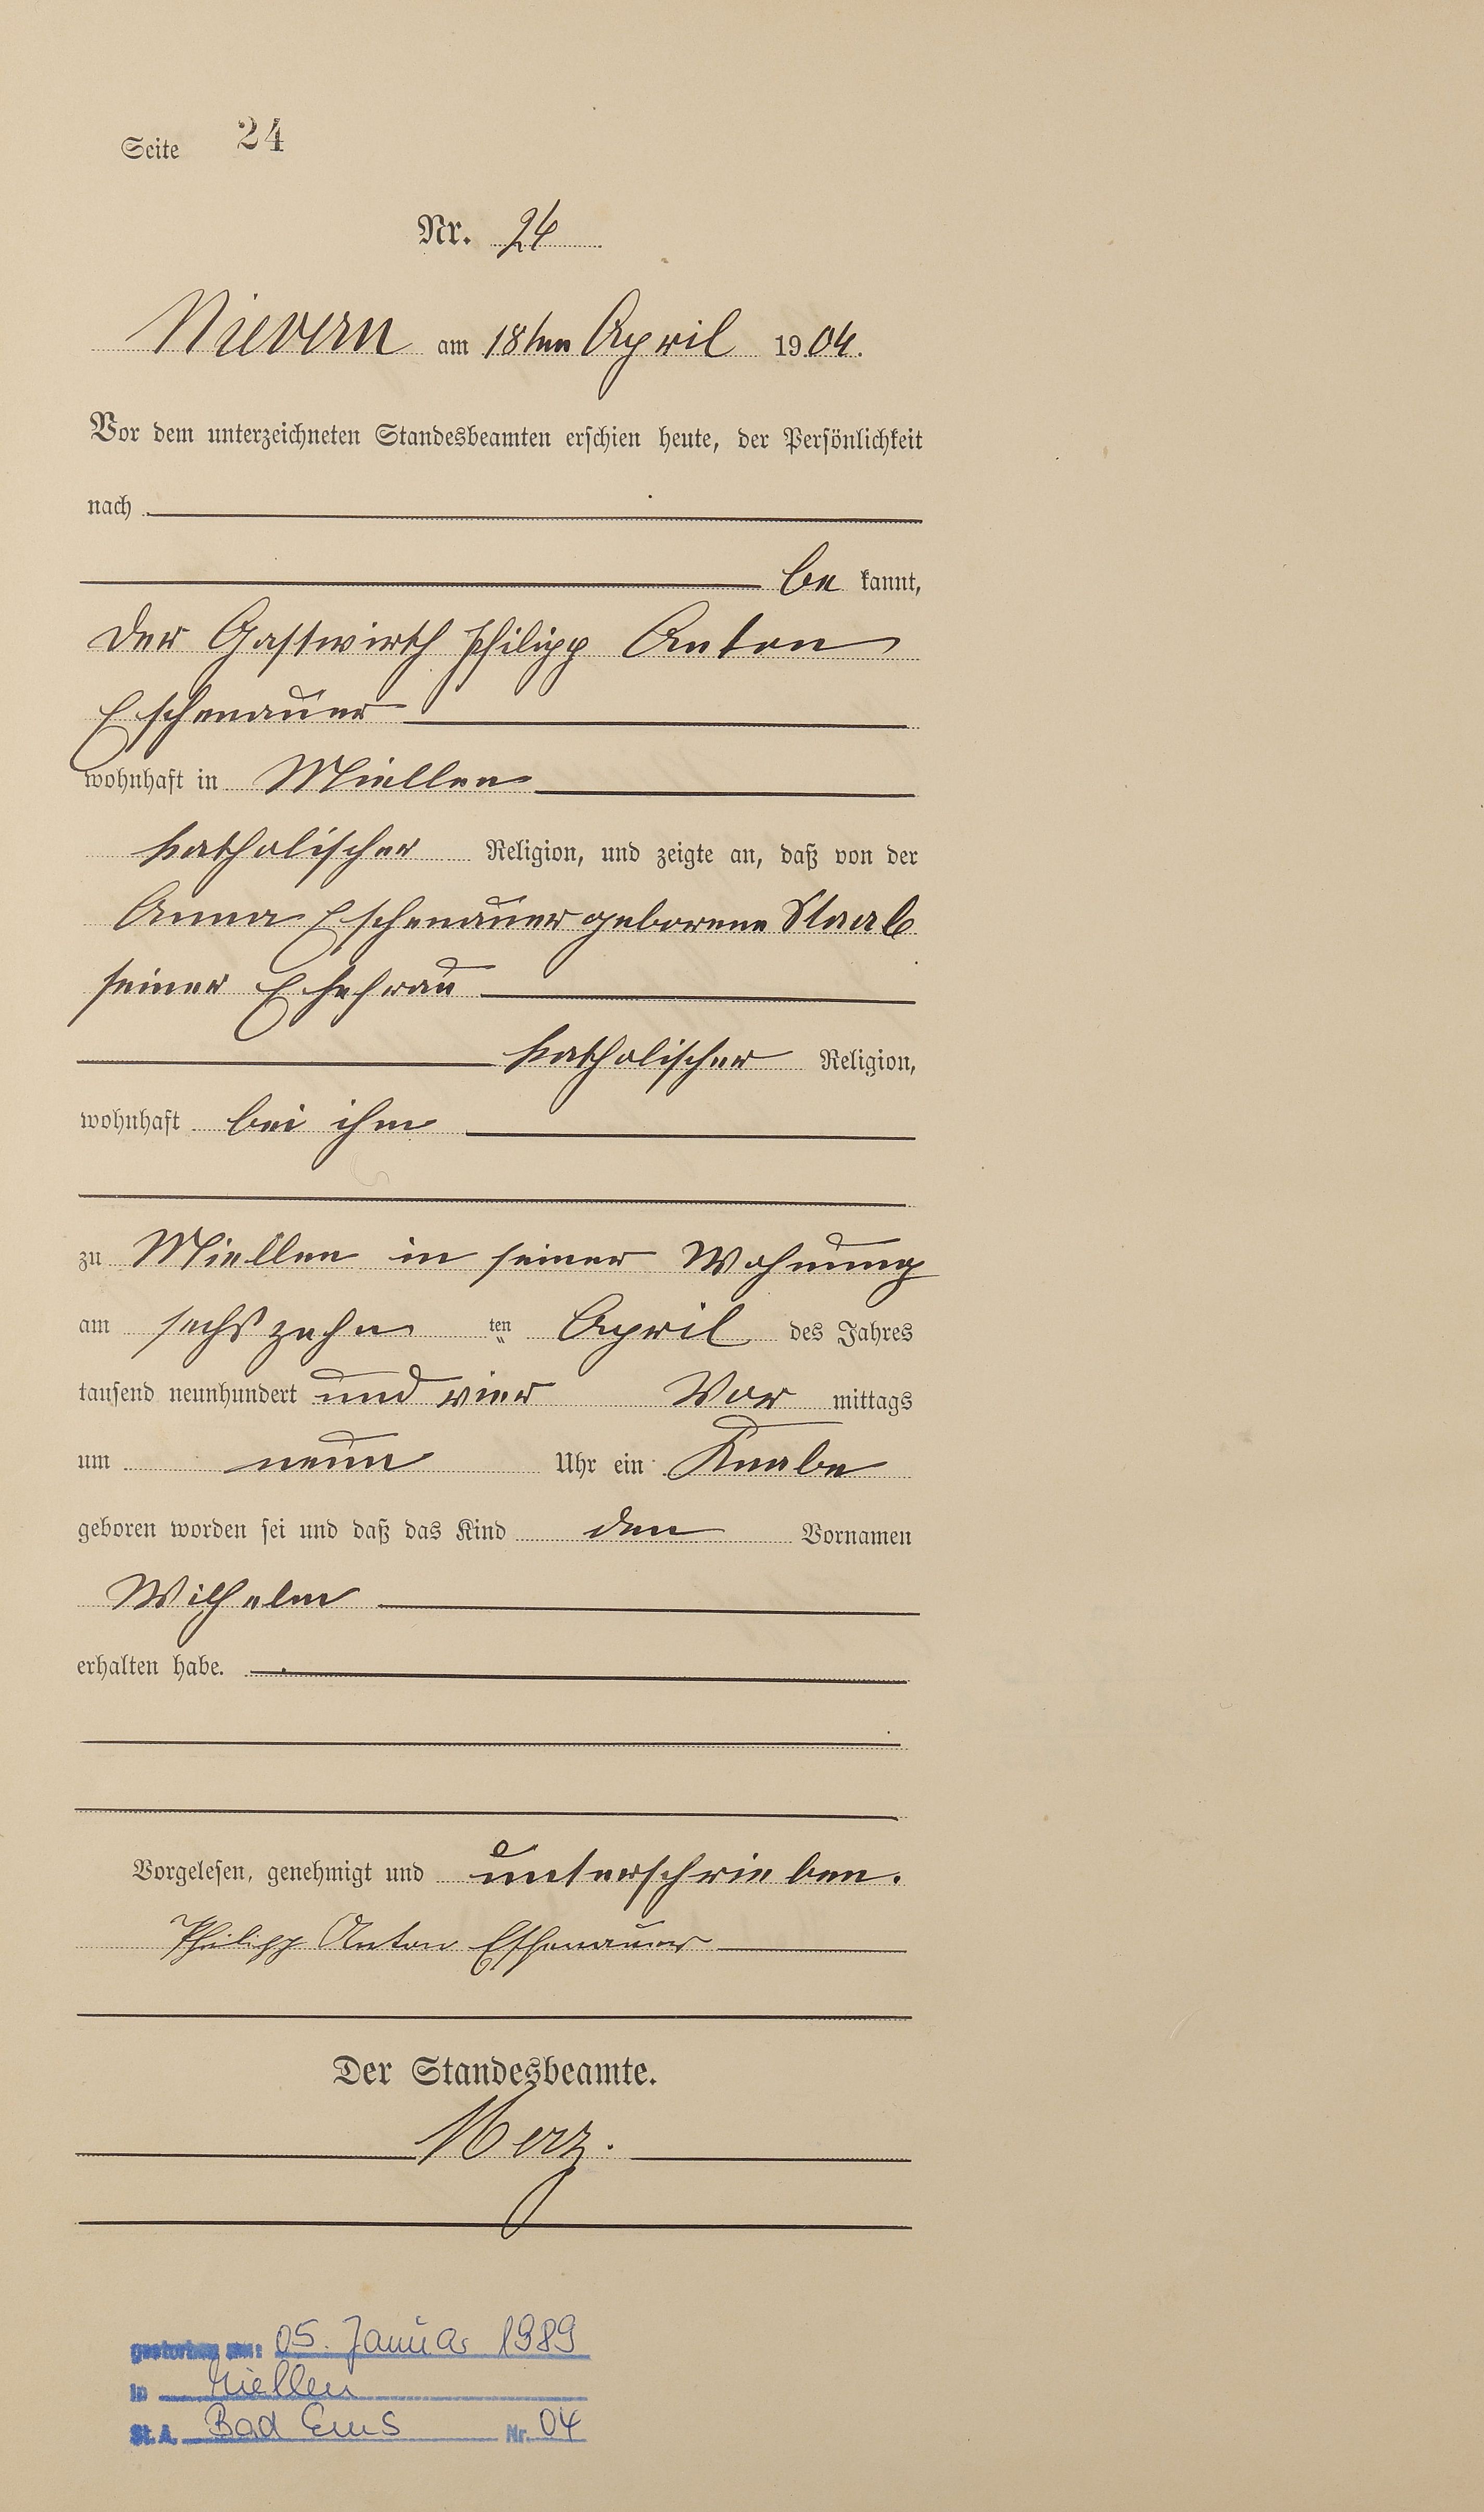 Seite 24
Nr. 24
Nievern am 18ten April 1904.
Vor dem unterzeichneten Standesbeamten erschien heute, der Persönlichkeit
nach
be kannt,
der Gastwirth Philipp Anton
Eschenauer
wohnhaft in Miellen
katholischer Religion, und zeigte an, daß von der
Anna Eschenauer geborene Staab
seiner Ehefrau
katholischer Religion,
wohnhaft bei ihm
zu Miellen in seiner Wohnung
am sechszehn ten April des Jahres
tausend neunhundert und vier Vor mittags
um neun Uhr ein Knabe
geboren worden sei und daß das Kind den Vornamen
Wilhelm
erhalten habe.
Vorgelesen, genehmigt und unterschrieben.
Philipp Anton Eschenauer
Der Standesbeamte.
Merz.
gestorben am: 05. Januar 1989
in Miellen
St. A. Bad Ems Nr. 04